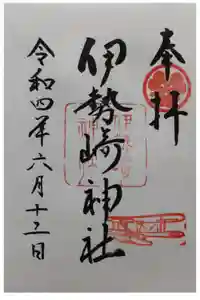 奉拝
伊勢崎神社
令和四年六月十二日